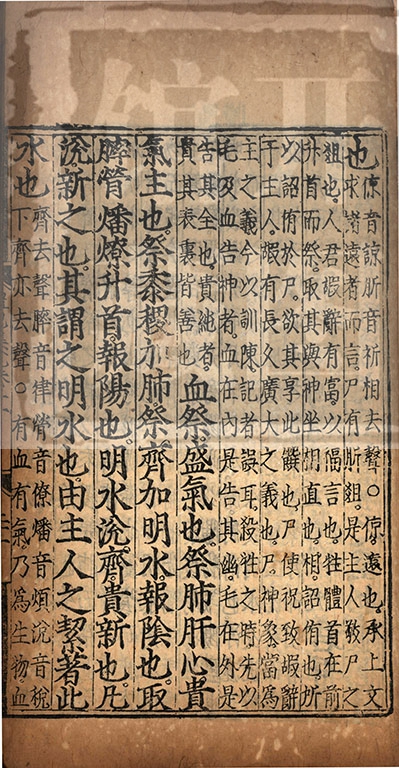 也倞音諒肵音祈相去聲○倞遠也承上文
求諸遠者而言尸有肵俎是主人敬尸之
俎也人君嘏辭有富以福言也牲體首在前
升首而祭取其與神坐相直也相詔侑也所
以詔侑於尸欲其享此饌也尸使祝致嘏辭
于主人嘏有長久廣大之義也尸神象當爲
主之義今以訓陳記者誤耳殺牲之時先以
毛及血告神者血在内是告其幽毛在外是
告其全也貴純者
貴其表裏皆善也
血祭盛氣也祭肺肝心貴
氣主也祭黍稷加肺祭齊加明水報陰也取
膟膋燔燎升首報陽也明水涗齊貴新也凡
涗新之也其謂之明水也由主人之絜著此
水也齊去聲膟音律膋音僚燔音煩涗音稅
下齊亦去聲○有血有氣乃爲生物血